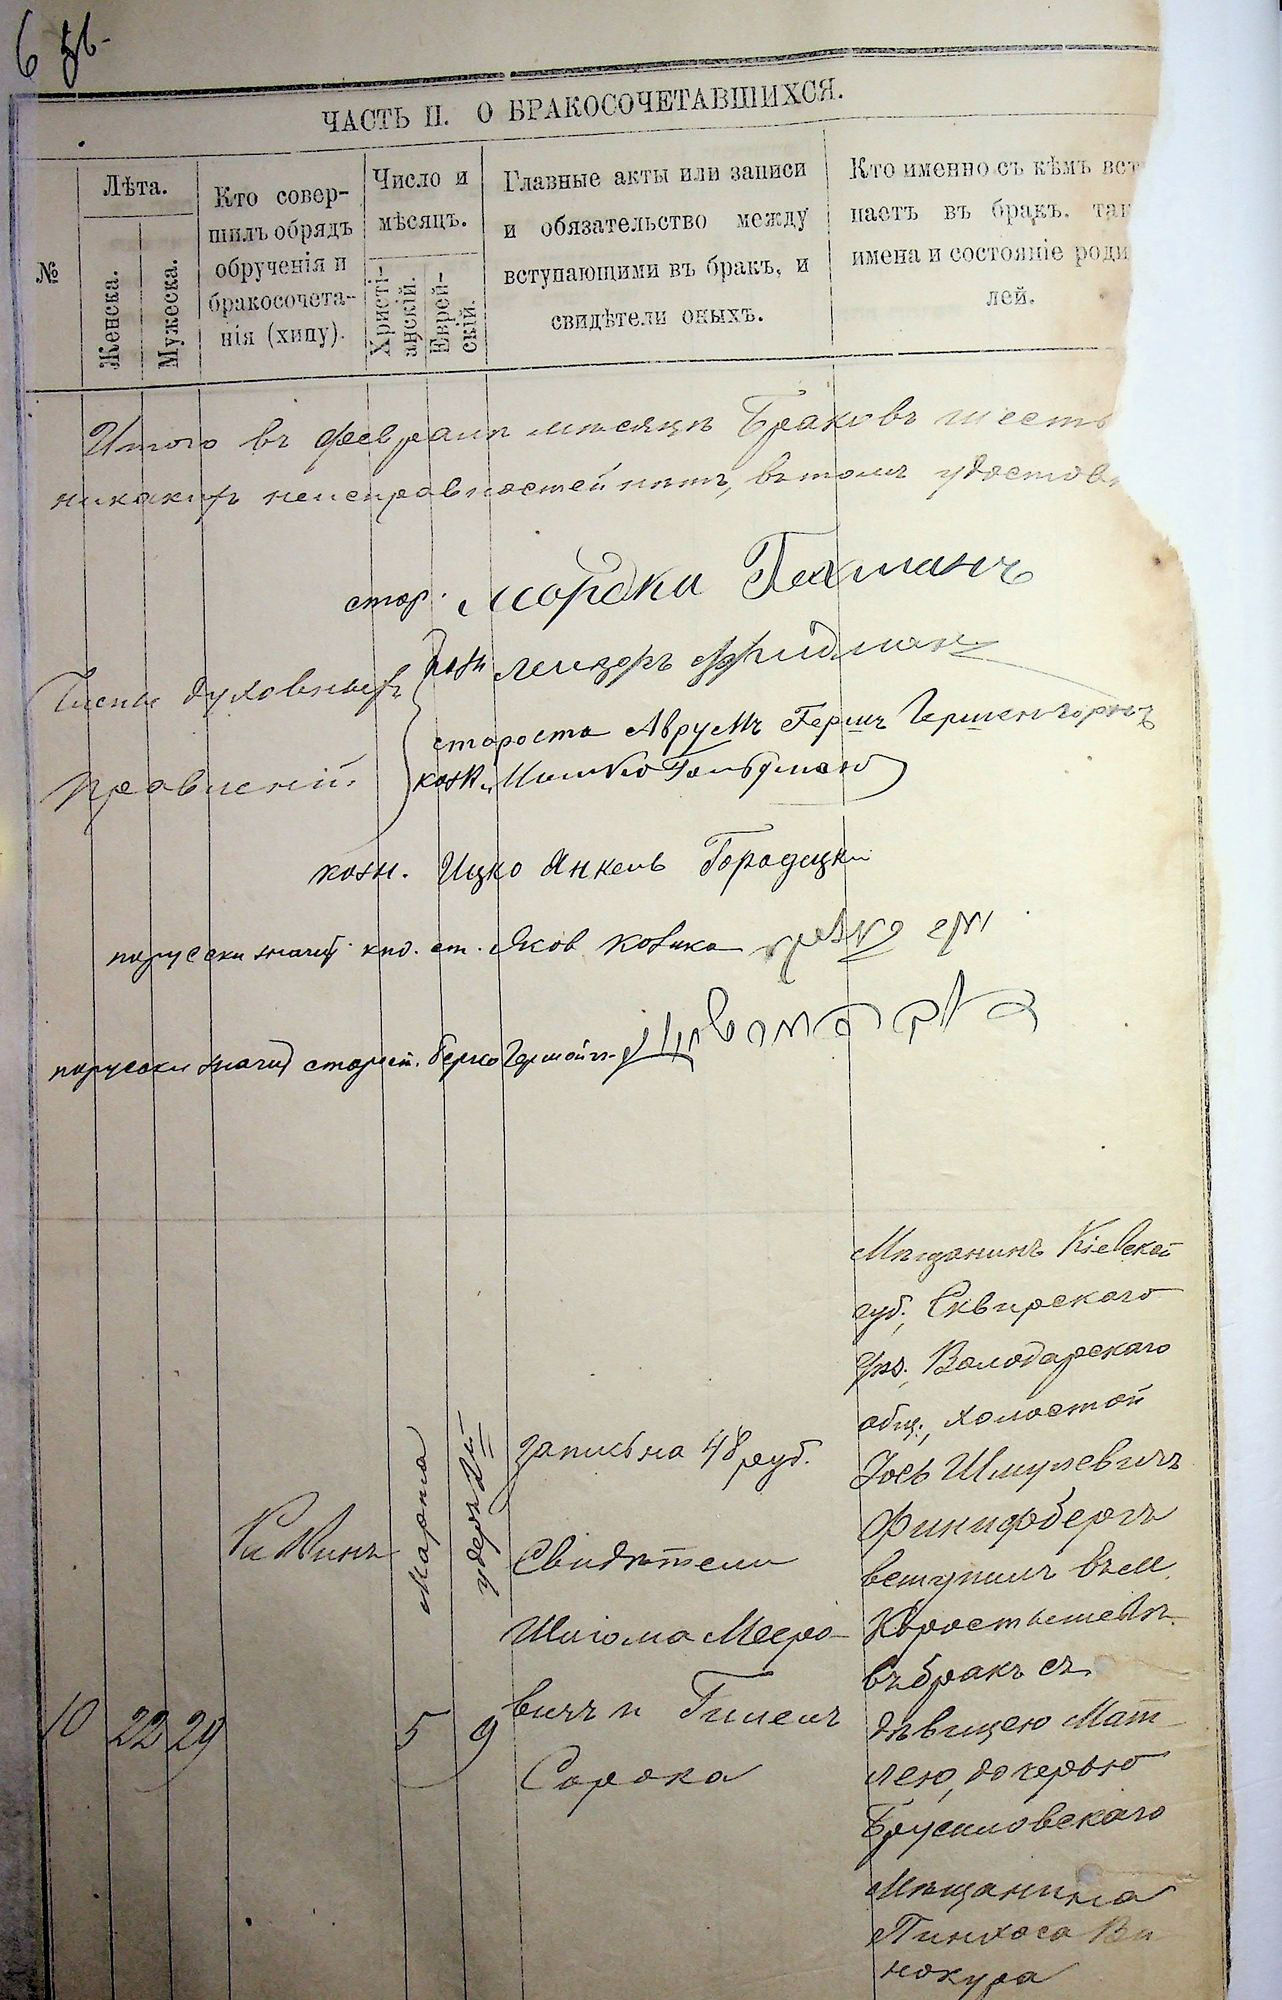 6 об.
ЧАСТЬ II. О БРАКОСОЧЕТАВШИХСЯ.
№
Лѣта.
Женска.
Мужеска.
Кто совер-
шилъ обрядъ
обрученія и
бракосочета-
нія (хипу).
Число и
мѣсяцъ.
Христі-
анскій.
Еврей-
скій.
Главные акты или записи
и обязательство между
вступающими въ бракъ, и
свидѣтели оныхъ.
Кто именно съ кѣмъ вст
паетъ въ бракъ, так
имена и состояніе роди
лей.
Итого въ февралѣ мѣсяцѣ Браковъ шесть
никакихъ неисправностей нѣтъ, въ томъ удостов
стар. Мордки Гехманъ
Члены духовныхъ
правленій.
казн Лейзеръ Фридман
староста Аврумъ Гершъ Гершенгорнъ
казн. Мошко Гольдман
казн. Ицко Янкель Городецки
порусски значит кпд. ст. Яков
порусски значит старост. Берко
10
22
29
Раввинъ
Марта
5
9
запись на 48 руб.
Свидѣтели
Шліома Мееро-
вичъ и
Сорока
Мѣщанинъ Кіевской
губ., Сквирскаго
уѣз. Володарскаго
общ., холостой
Іось Шмулевичъ
вступилъ въ м.
Коростышевѣ
въ бракъ съ
дѣвицею Мат-
лею, дочерью
Брусиловскаго
Мѣщанина
Пинхоса Ви
нокура